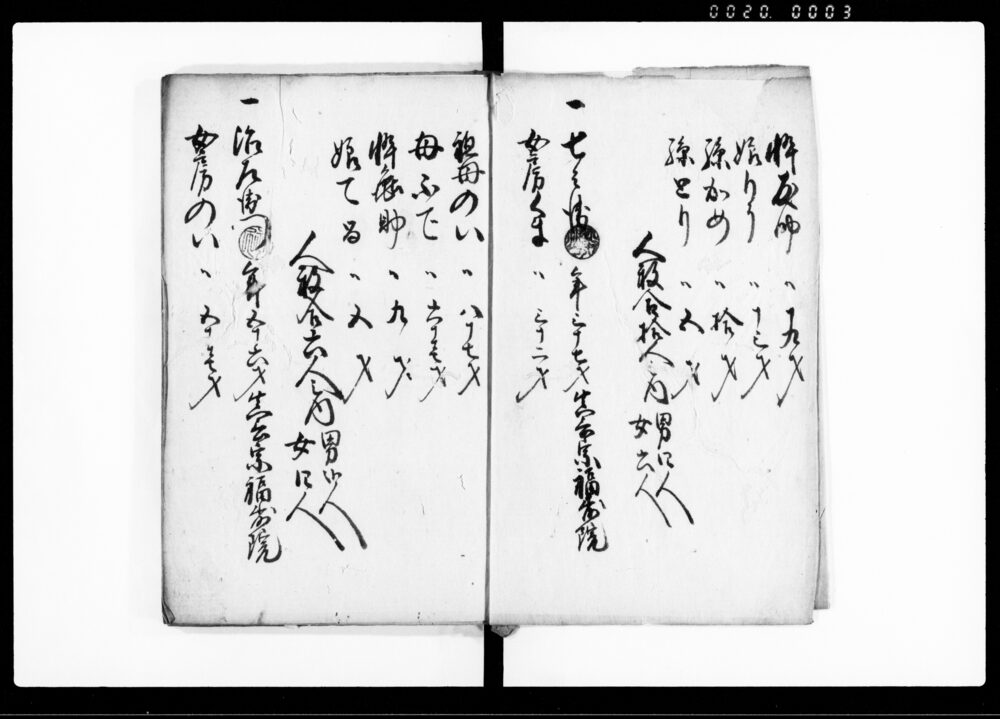 0020. 0003
忰 〃 十九才
娘りう 〃 十三才
孫かめ 〃 拾才
孫とり 〃 五才
人数合拾人之内 男四人
女六人
一 七之 年三十七才 真言宗福 院
女房くま 〃 三十二才
祖母のい 〃 八十七才
母ふて 〃 六十 才
忰 助 〃 九才
娘てる 〃 五才
人数合六人之内 男 人
女四人
一 治左衛門 年五十六才 真言宗福 院
女房のい 〃 五十 才